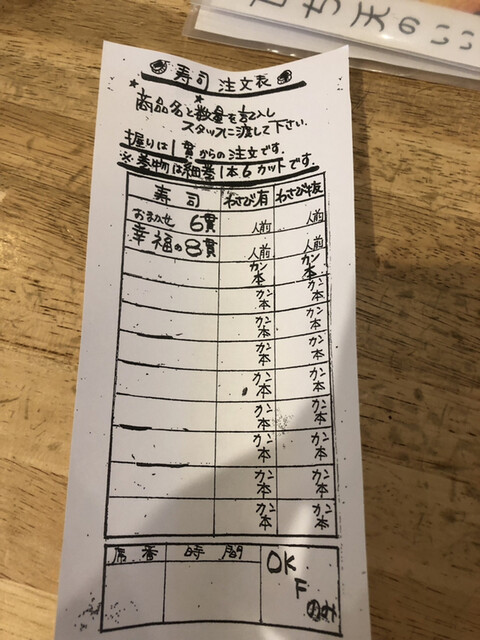 寿司 注文表
商品名と数量を記入し
スタッフに渡して下さい。
握りは1貫からの注文です。
※巻物は細巻1本6カットです。
寿司 わさび有 わさび抜
おまかせ 6貫 人前 人前
幸福の8貫 人前 人前
カン 本 カン 本
カン 本 カン 本
カン 本 カン 本
カン 本 カン 本
カン 本 カン 本
カン 本 カン 本
カン 本 カン 本
カン 本 カン 本
カン 本 カン 本
席番 時間 OK
F
のみ